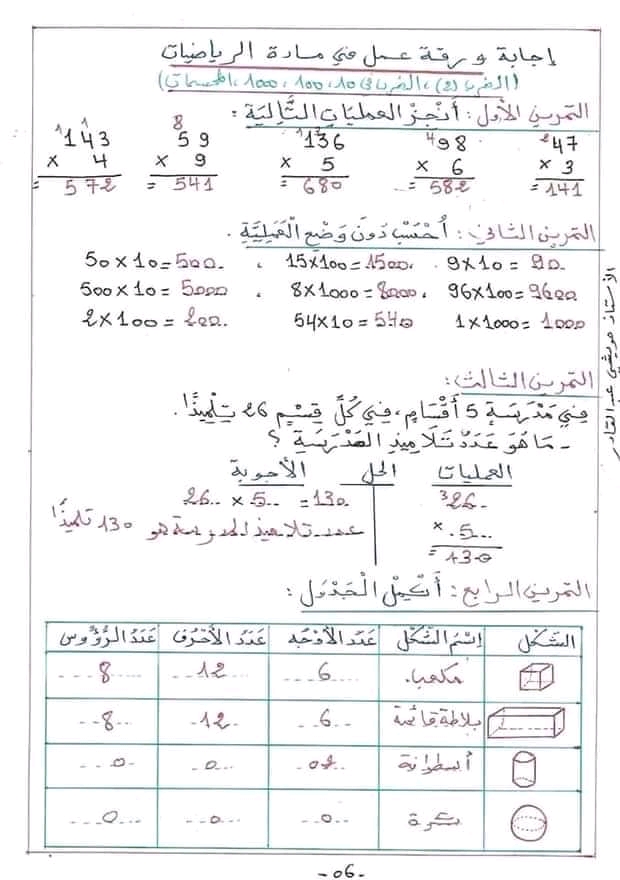 إجابة ورقة عمل في مادة الرياضيات
(الضرب (2)، الضرب في 10، 100، 1000، المجسمات)
التمرين الأول: أَنْجِزْ العمليات التَّالِيَة:
143 59 136 98 47
× 4 × 9 × 5 × 6 × 3
= 572 = 541 = 680 = 582 = 141
التمرين الثاني: أُحْسُبْ دُونَ وَضْعِ الْعَمَلِيَّةِ.
50 × 10 = 500. ، 15 × 100 = 1500، 9 × 10 = 90.
500 × 10 = 5000 ، 8 × 1000 = 8000، 96 × 100 = 9600
2 × 100 = 200. 54 × 10 = 540 1 × 1000 = 1000
التمرين الثالث:
فِي مَدْرَسَةٍ 5 أَقْسَامٍ، فِي كُلِّ قِسْمٍ 26 تِلْمِيذًا.
- مَا هُوَ عَدَدُ تَلَامِيذِ المَدْرَسَةِ ؟
العمليات الحل الأجوبة
26 26.. × 5.. = 130
× .5... عدد تلاميذ المدرسة هو 130 تلميذًا
= 130
التمرين الرابع: أَكْمِلْ الْجَدْوَل:
الشَّكْل إِسْمُ الشَّكْل عَدَدُ الأَوْجُه عَدَدُ الأَحْرُف عَدَدُ الرُّؤُوس
مكعب. ...6.... ...12.... ...8....
بلاطة قائمة ...6.. ..12. ..8...
أسطوانة ..02.. ..0.. ...0.
كرة ..0.. ..0.. ...0...
الأستاذ مويشي عبد القادر
-06-